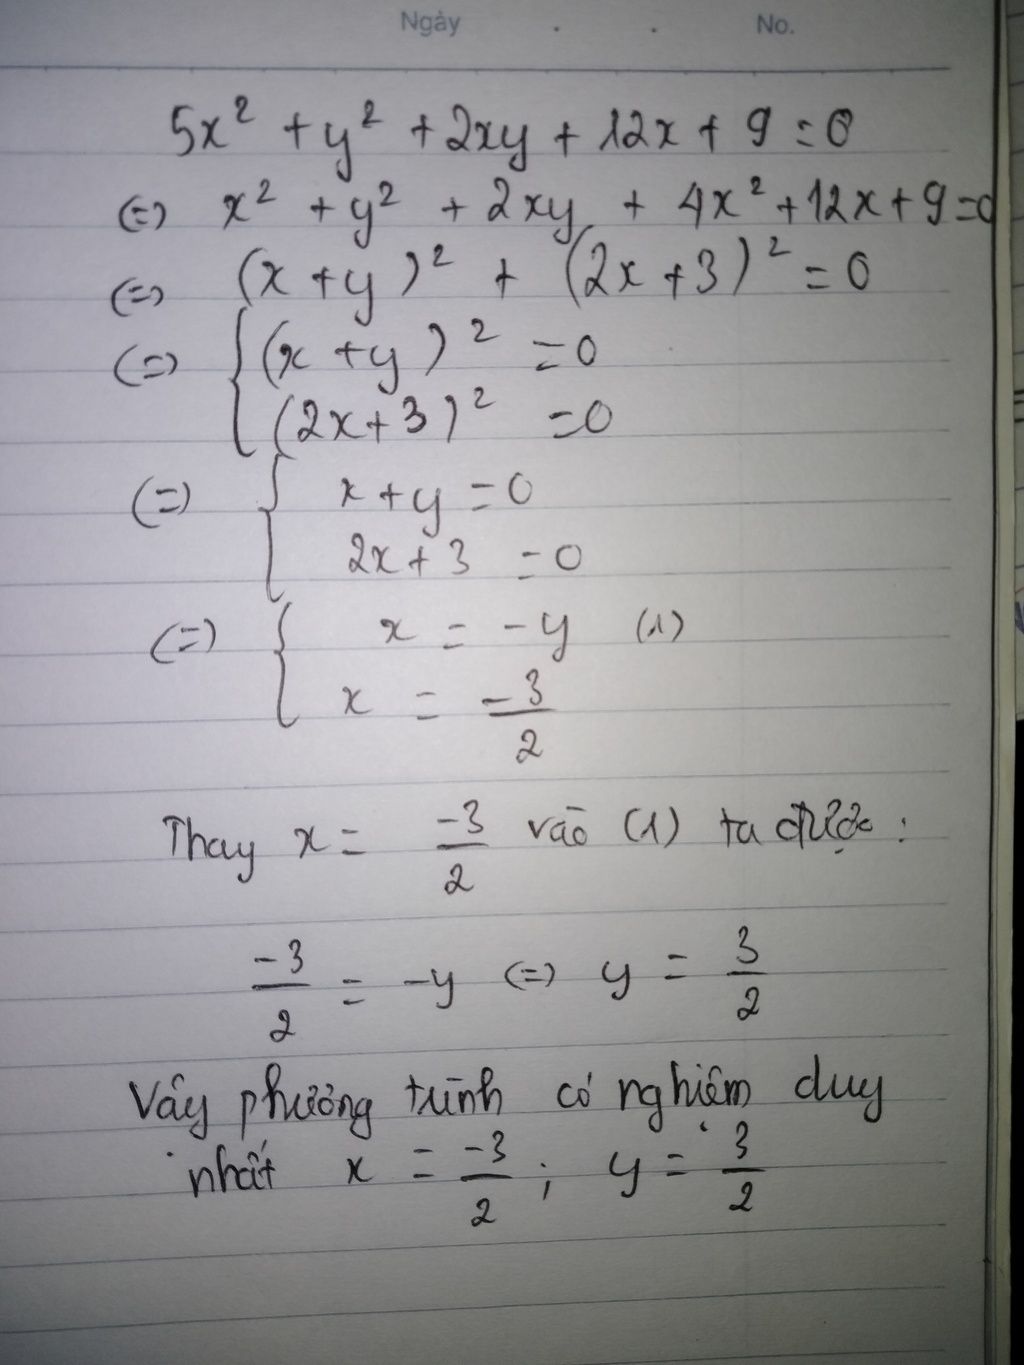 Ngày . . No.
5x² + y² + 2xy + 12x + 9 = 0
(=) x² + y² + 2xy + 4x² + 12x + 9 = 0
(=) (x + y)² + (2x + 3)² = 0
(=) { (x + y)² = 0
(2x + 3)² = 0
(=) { x + y = 0
2x + 3 = 0
(=) { x = -y (1)
x = -3/2
Thay x = -3/2 vào (1) ta được :
-3/2 = -y (=) y = 3/2
Vậy phương trình có nghiệm duy
nhất x = -3/2 ; y = 3/2